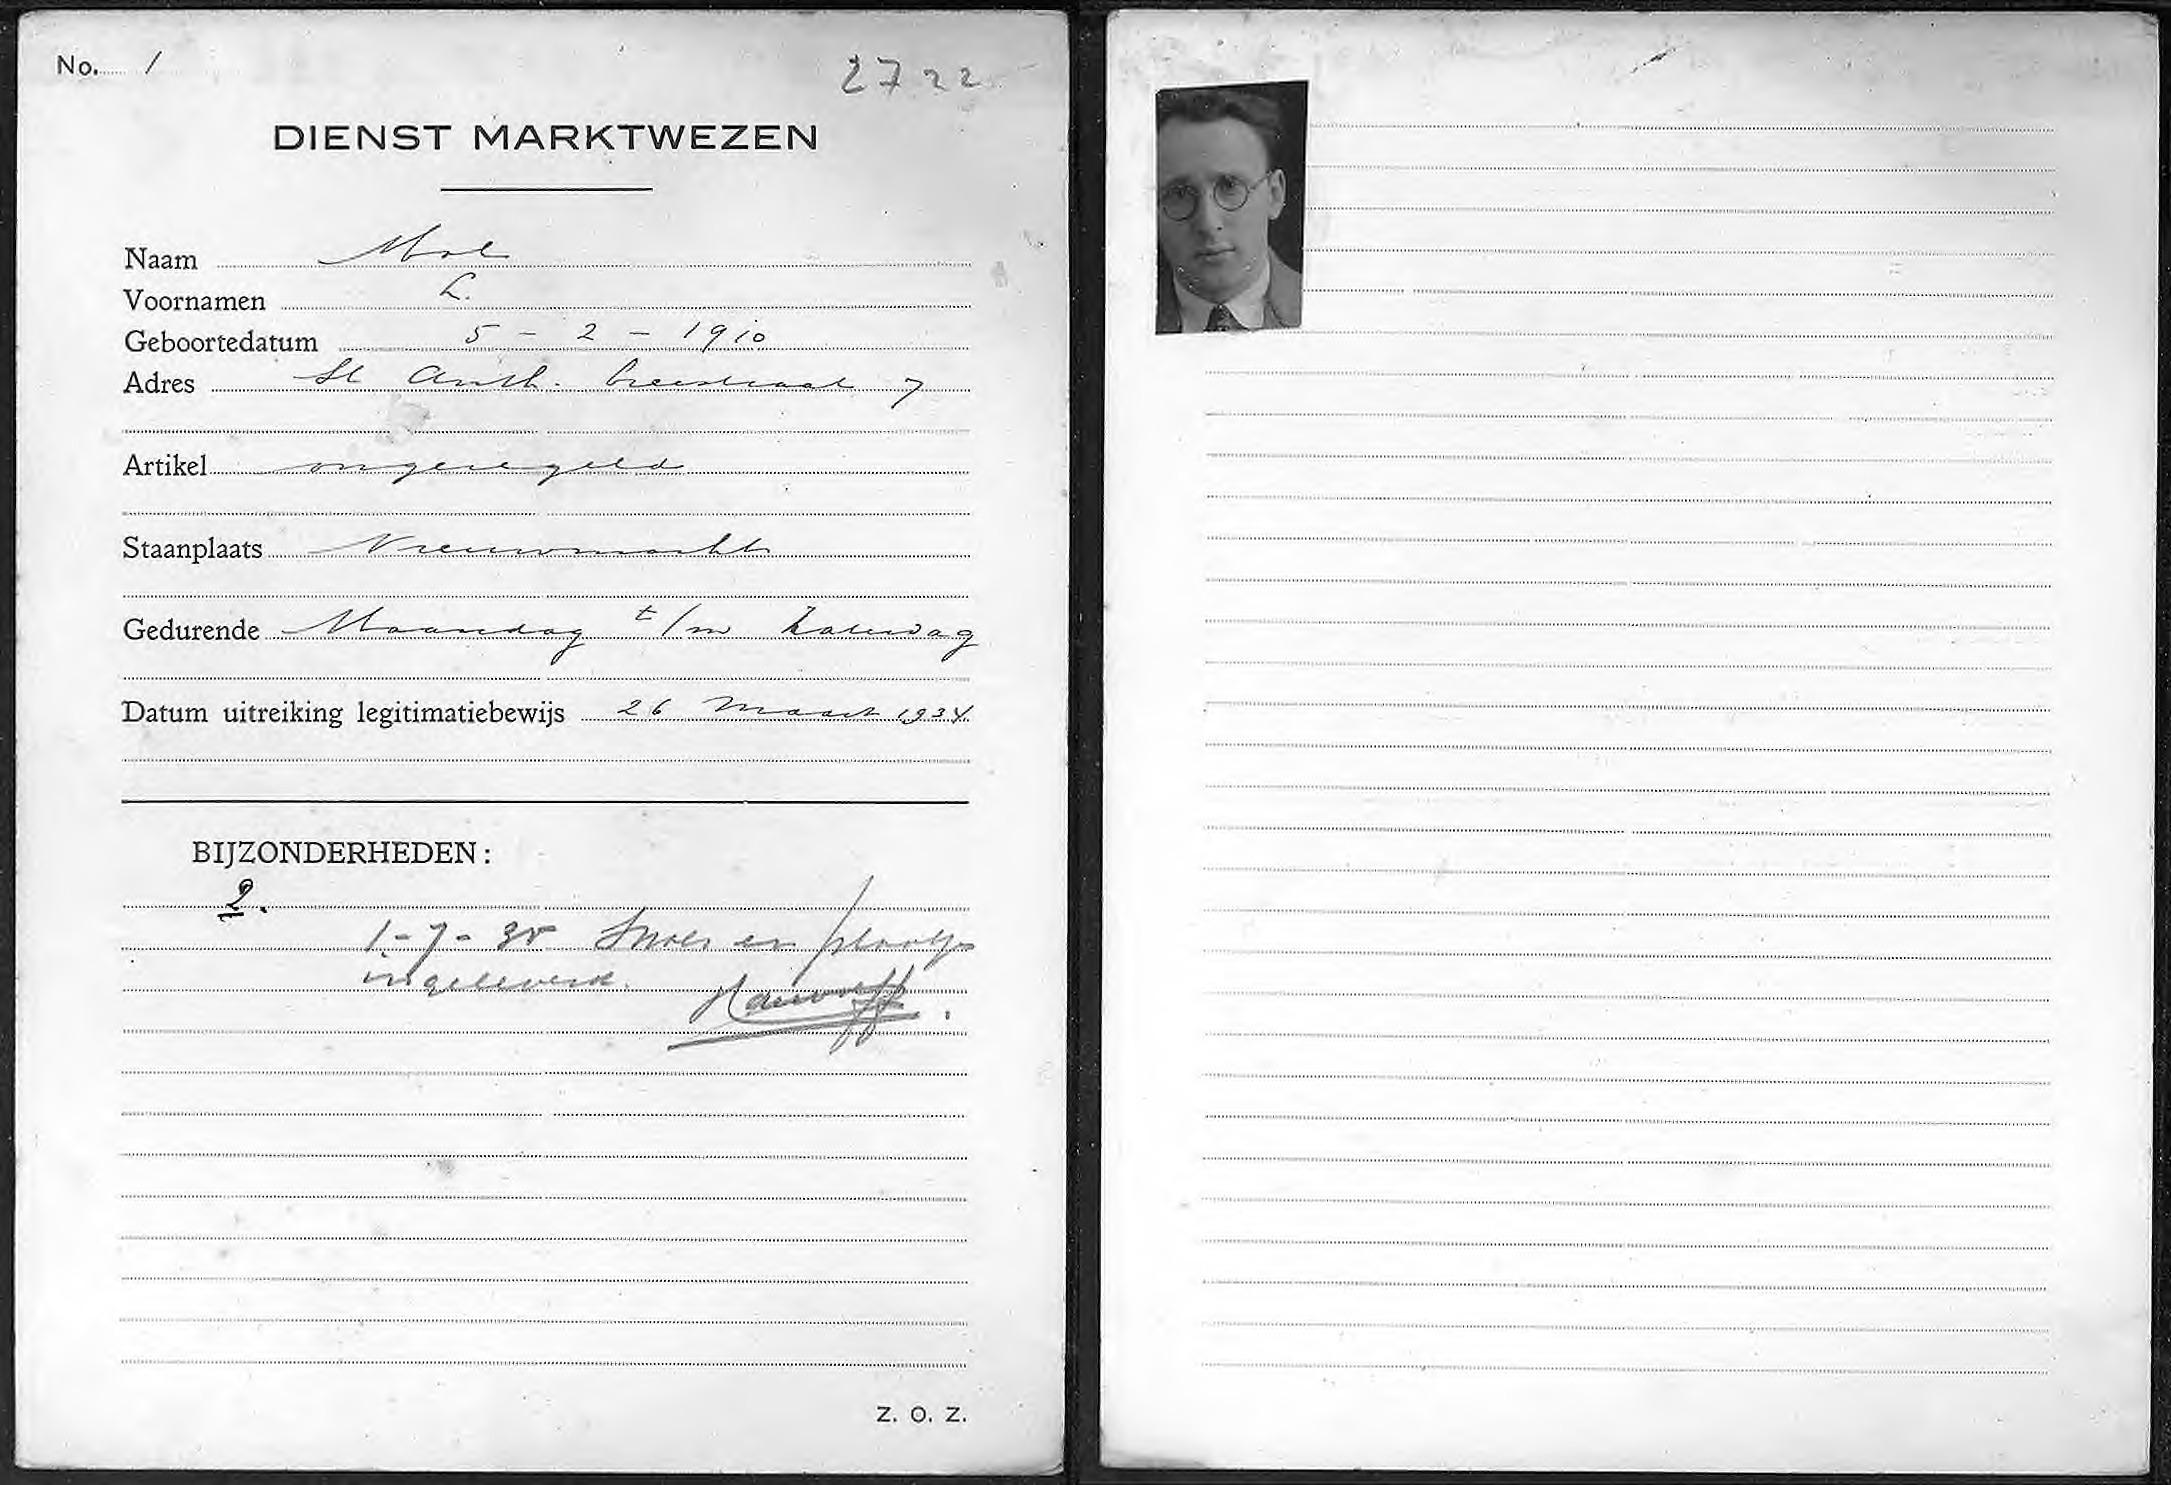 No. 1
2722
DIENST MARKTWEZEN
Naam Mol
Voornamen L.
Geboortedatum 5 - 2 - 1910
Adres St Anth. breestraat 7
Artikel ongeregeld
Staanplaats Nieuwmarkt
Gedurende Maandag t/m Zaterdag
Datum uitreiking legitimatiebewijs 26 Maart 1934
BIJZONDERHEDEN:
2.
1-7-35 en plaatje
ingeleverd.
Z. O. Z.